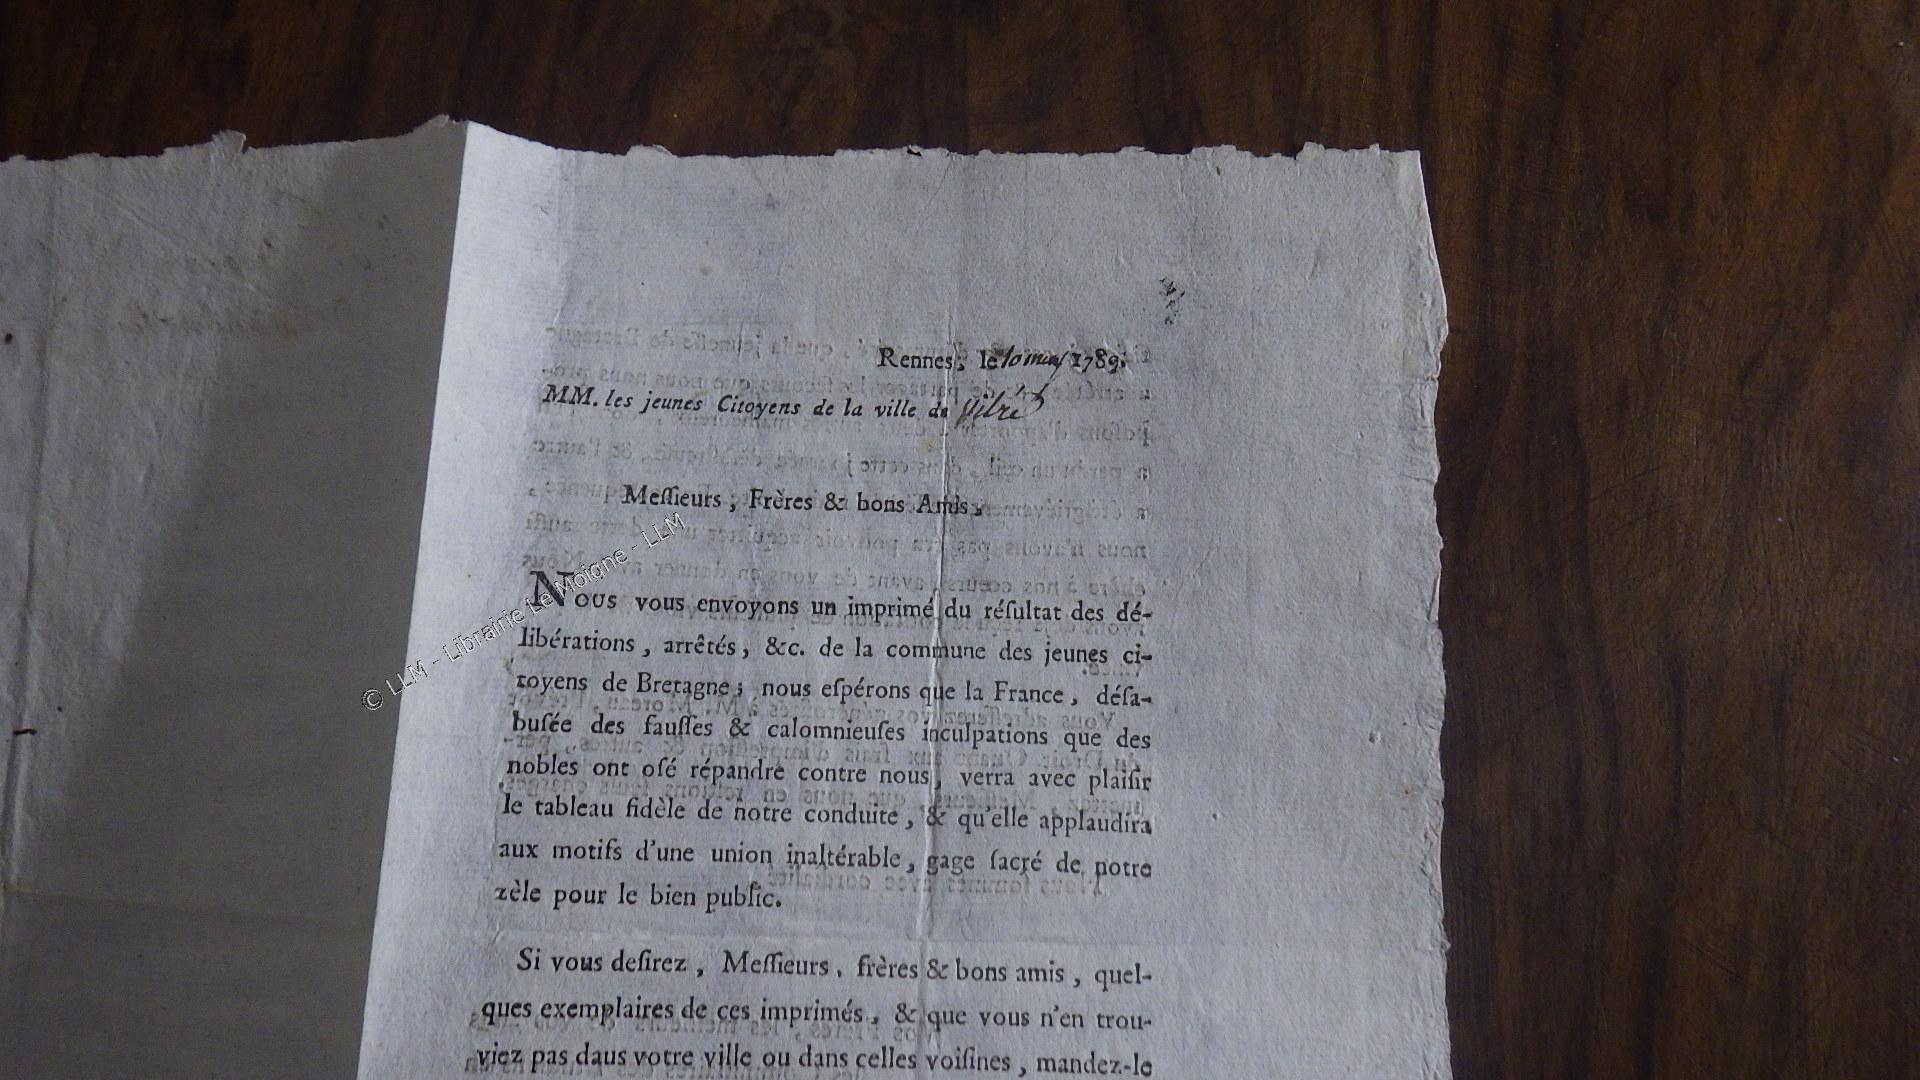 Rennes, le 10 mars 1789.
MM. les jeunes Citoyens de la ville de Vitré
Meſſieurs, Frères & bons Amis,
Nous vous envoyons un imprimé du réſultat des dé-
libérations, arrêtés, &c. de la commune des jeunes ci-
toyens de Bretagne; nous eſpérons que la France, déſa-
buſée des fauſſes & calomnieuſes inculpations que des
nobles ont oſé répandre contre nous, verra avec plaiſir
le tableau fidèle de notre conduite, & qu'elle applaudira
aux motifs d'une union inaltérable, gage ſacré de notre
zèle pour le bien public.
Si vous deſirez, Meſſieurs, frères & bons amis, quel-
ques exemplaires de ces imprimés, & que vous n'en trou-
viez pas daus votre ville ou dans celles voiſines, mandez-le
© LLM - Librairie Le Moigne - LLM